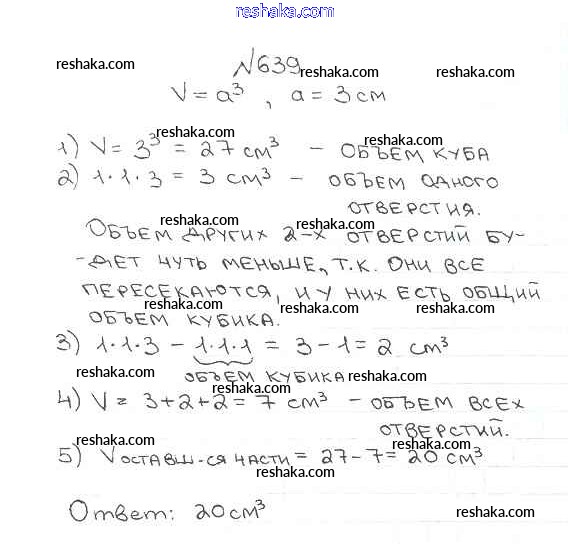 reshaka.com
№639
reshaka.com reshaka.com reshaka.com
V = a³ , a = 3 см
reshaka.com
1) V = 3³ = 27 см³ – объем куба
reshaka.com
2) 1·1·3 = 3 см³ – объем одного
отверстия.
reshaka.com reshaka.com
Объем других 2-х отверстий бу-
-дет чуть меньше, т.к. они все
пересекаются, и у них есть общий
reshaka.com reshaka.com
объем кубика.
3) 1·1·3 – 1·1·1 = 3 – 1 = 2 см³
объем кубика
reshaka.com
reshaka.com
4) V = 3+2+2 = 7 см³ – объем всех
отверстий.
reshaka.com reshaka.com
5) Vоставш-ся части = 27–7 = 20 см³
reshaka.com
Ответ: 20 см³
reshaka.com reshaka.com